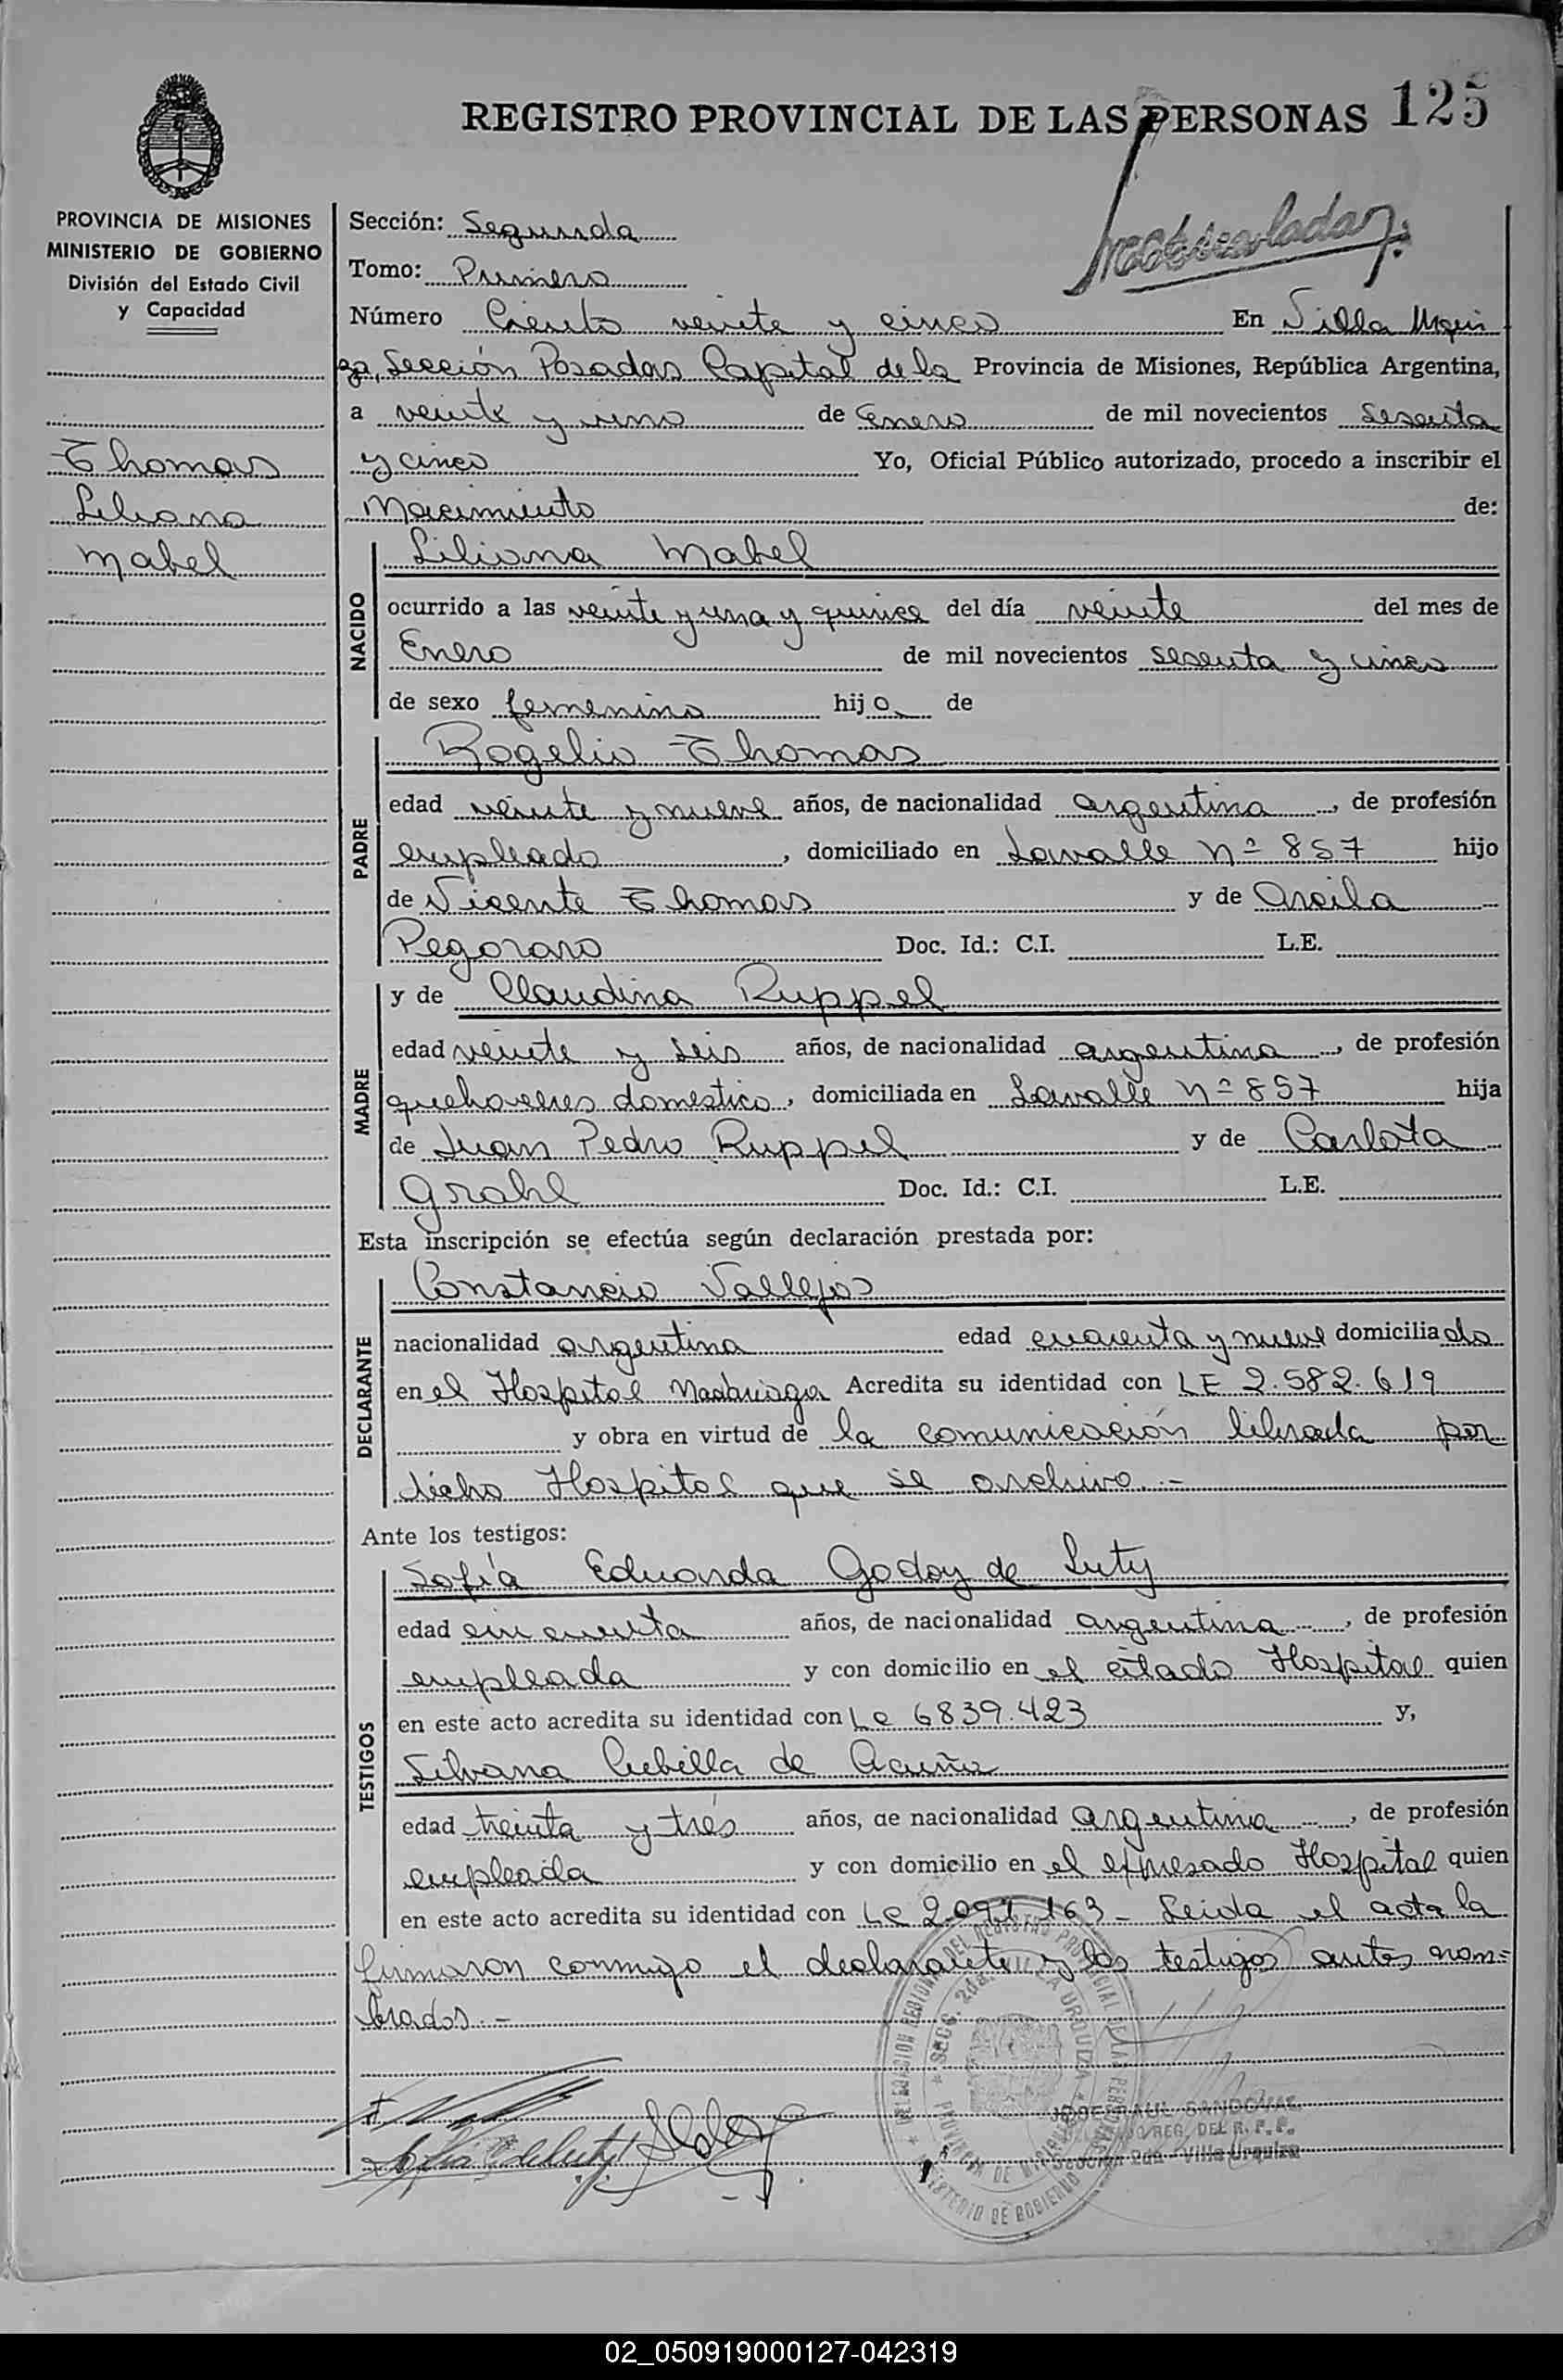 REGISTRO PROVINCIAL DE LAS PERSONAS 125
PROVINCIA DE MISIONES
MINISTERIO DE GOBIERNO
División del Estado Civil
y Capacidad
Thomas
Liliana
Mabel
Sección: Segunda
Tomo: Primero
Número Ciento veinte y cinco En Villa Urqui
za, Sección Posadas Capital de la Provincia de Misiones, República Argentina,
a veinte y uno de Enero de mil novecientos sesenta
y cinco Yo, Oficial Público autorizado, procedo a inscribir el
Nacimiento de:
NACIDO
Liliana Mabel
ocurrido a las veinte y una y quince del día veinte del mes de
Enero de mil novecientos sesenta y cinco
de sexo femenino hija de
PADRE
Rogelio Thomas
edad veinte y nueve años, de nacionalidad argentina, de profesión
empleado, domiciliado en Lavalle Nº 857 hijo
de Vicente Thomas y de
Pegoraro Doc. Id.: C.I. L.E.
MADRE
y de Claudina Ruppel
edad veinte y seis años, de nacionalidad argentina, de profesión
quehaceres domestico, domiciliada en Lavalle Nº 857 hija
de Juan Pedro Ruppel y de Carlota
Grahl Doc. Id.: C.I. L.E.
Esta inscripción se efectúa según declaración prestada por:
DECLARANTE
Constancio Vallejos
nacionalidad argentina edad cuarenta y nueve domiciliado
en el Hospital Madariaga Acredita su identidad con LE 2.582.619
y obra en virtud de la comunicación librada por
dicho Hospital que se archivo.-
Ante los testigos:
TESTIGOS
Sofía Eduarda Godoy de Luty
edad cincuenta años, de nacionalidad argentina, de profesión
empleada y con domicilio en el citado Hospital quien
en este acto acredita su identidad con Le 6839.423 y,
Silvana Cubilla de Acuña
edad treinta y tres años, de nacionalidad argentina, de profesión
empleada y con domicilio en el expresado Hospital quien
en este acto acredita su identidad con Le 2.091.163- Leida el acta la
firmaron conmigo el declarante y los testigos antes nom=
brados.-
DELEGACION REGIONAL DEL REGISTRO PROVINCIAL DE LAS PERSONAS
SECC. 2da. VILLA URQUIZA
PROVINCIA DE MISIONES
MINISTERIO DE GOBIERNO
JOSE RAUL SANDOVAL
REG. DEL R. P. P.
Sección 2da - Villa Urquiza
02_050919000127-042319